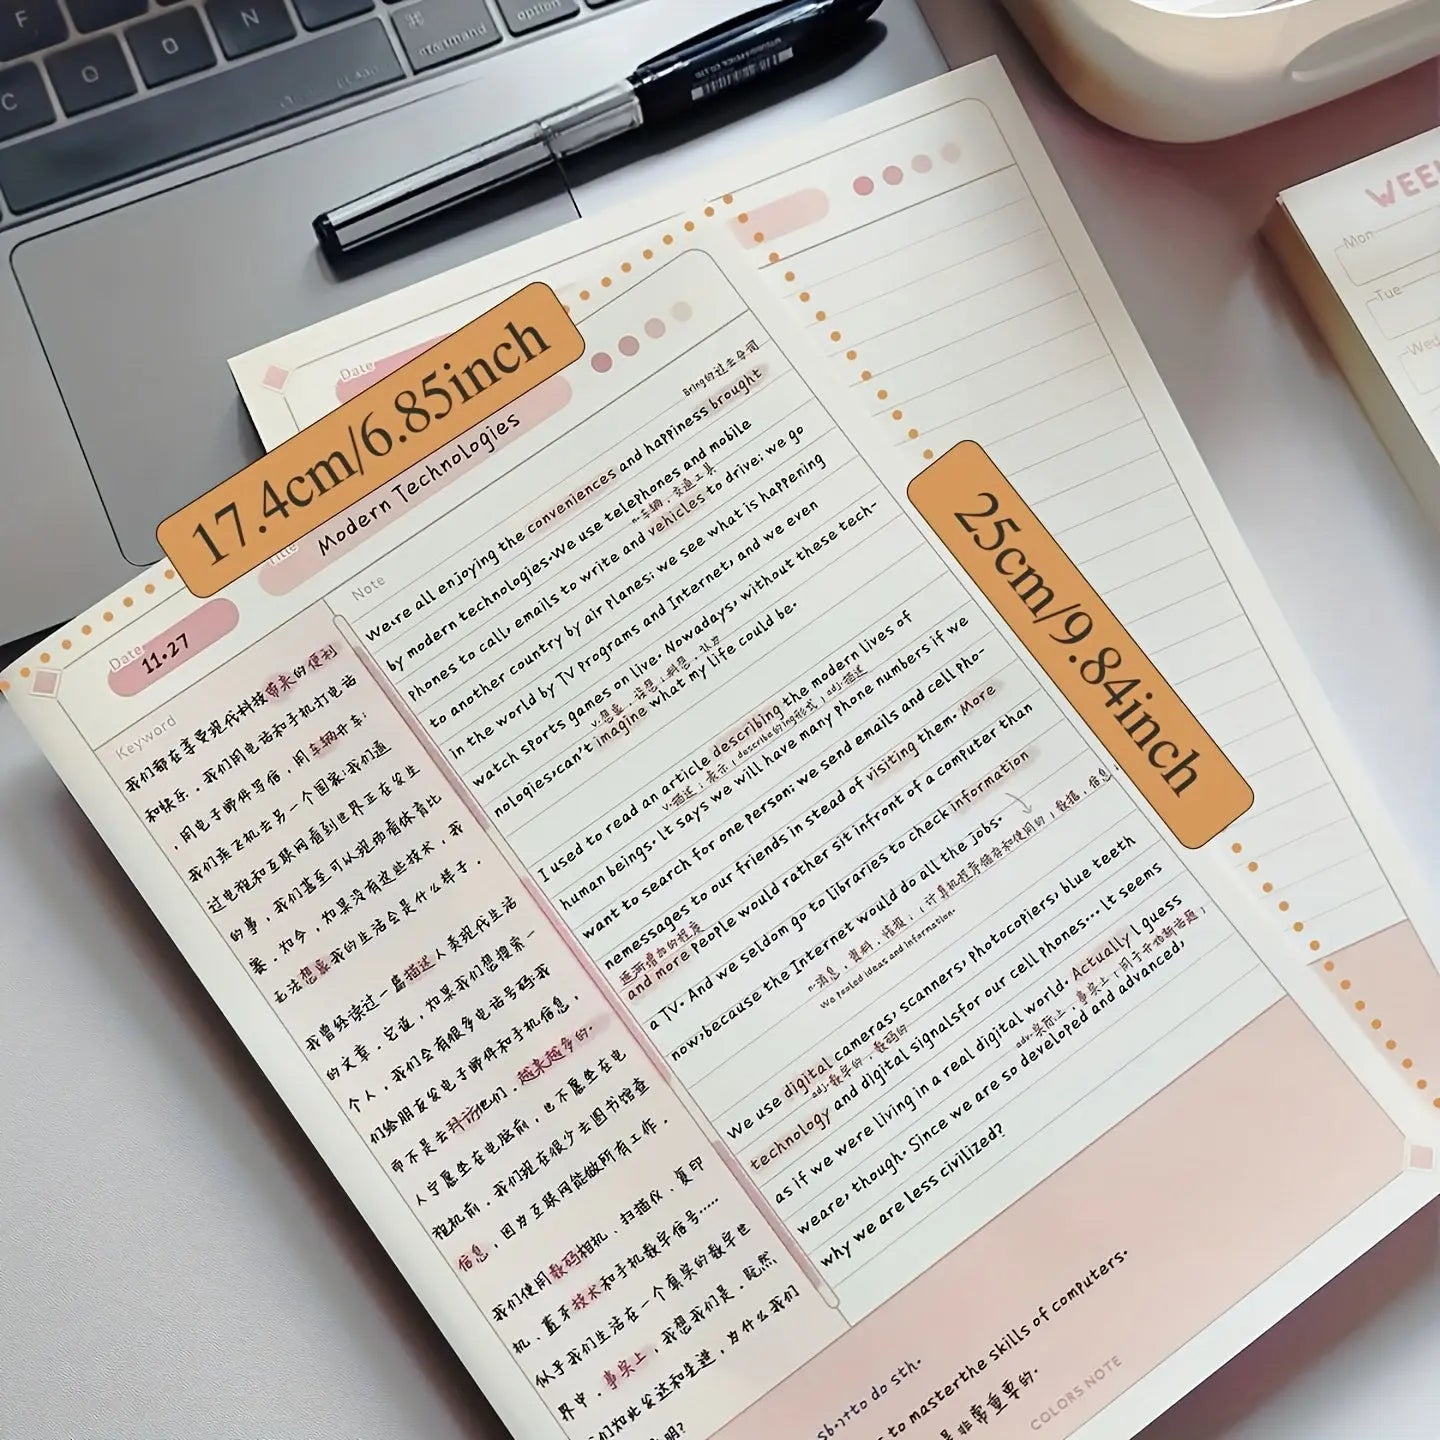 17.4cm/6.85inch
25cm/9.84inch
F
C
O
O
N
⌘
command
option
Date
Date
11.27
Title
Modern Technologies
Keyword
我们都在享受现代科技带来的便利
和快乐。我们用电话和手机打电话
,用电子邮件写信,用车辆开车;
我们乘飞机去另一个国家;我们通
过电视和互联网看到世界正在发生
的事,我们甚至可以现场看体育比
赛.如今,如果没有这些技术,我
无法想象我的生活会是什么样子.
我曾经读过一篇描述人类现代生活
的文章.它说,如果我们想搜索一
个人,我们会有很多电话号码;我
们给朋友发电子邮件和手机信息,
而不是去拜访他们.越来越多的.
人宁愿坐在电脑前,也不愿坐在电
视机前.我们现在很少去图书馆查
信息,因为互联网能做所有工作.
我们使用数码相机、扫描仪、复印
机、蓝牙技术和手机数字信号……
似乎我们生活在一个真实的数字世
界中.事实上,我想我们是.既然
我们如此发达和先进,为什么我们
明?
Note
Bring的过去分词
We.re all enjoying the conveniences and happiness brought
by modern technologies.We use telephones and mobile
n.车辆,交通工具
Phones to call, emails to write and vehicles to drive; we go
to another country by air planes; we see what is happening
in the world by TV Programs and Internet, and we even
watch sports games on live. Nowadays, without these tech-
nologies,can't imagine what my life could be.
I used to read an article describing the modern lives of
v.描述,表示(describe的ing形式)adj.描述
human beings. It says we will have many Phone numbers if we
want to search for one person; we send emails and cell Pho-
nemessages to our friends in stead of visiting them. More
逐渐增加的程度
and more People would rather sit infront of a computer than
a TV. And we seldom go to libraries to check information
now,because the Internet would do all the jobs.
n.消息,资料,情报;(计算机程序储存和使用的)数据,信息;
We pooled ideas and information.
We use digital cameras, scanners, Photocopiers, blue teeth
adj.数字的,数码的
technology and digital signalsfor our cell phones... It seems
as if we were living in a real digital world. Actually I guess
adv.实际上,事实上(用于开始新话题)
weare, though. Since we are so developed and advanced,
why we are less civilized?
to do sth.
to masterthe skills of computers.
是非常重要的.
COLORS NOTE
WEE
Mon
Tue
Wed